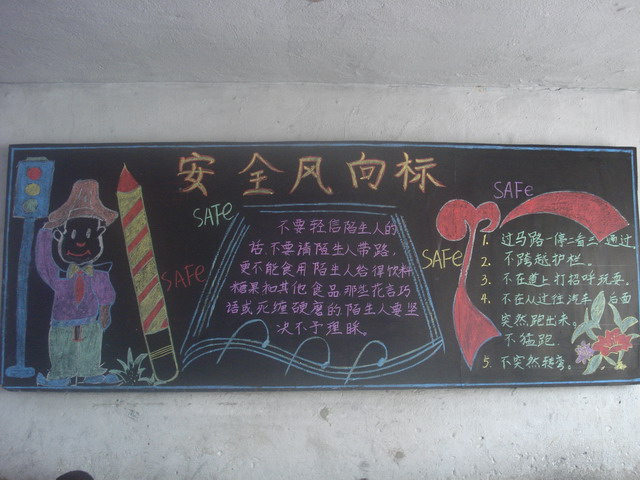 安全风向标
SAFe
SAFe
不要轻信陌生人的
话.不要请陌生人带路,
更不能食用陌生人给得饮料
糖果和其他食品那些花言巧
语或死缠硬磨的陌生人要坚
决不予理睬。
SAFe
SAFe
1. 过马路一停二看三通过
2. 不跨越护栏。
3. 不在道上打招呼玩耍。
4. 不在从过往汽车 后面
突然跑出来.
不猛跑.
5. 不突然转弯。